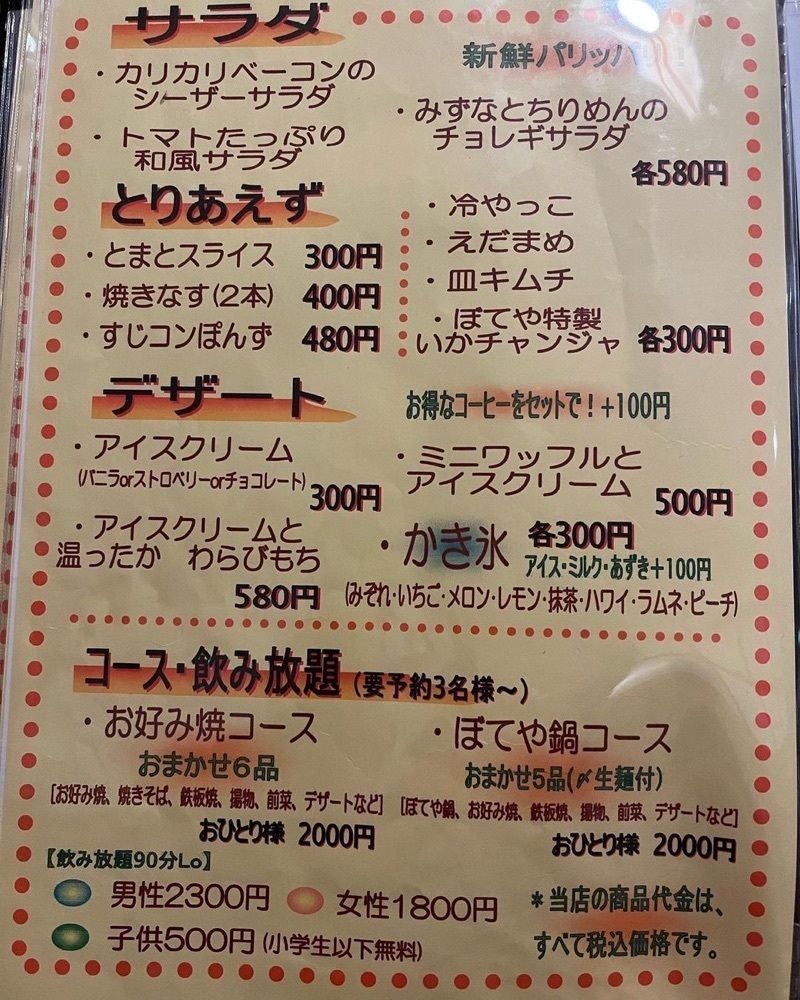 サラダ
新鮮パリッパリ
・カリカリベーコンの
シーザーサラダ
・みずなとちりめんの
チョレギサラダ
・トマトたっぷり
和風サラダ
各580円
とりあえず
・とまとスライス 300円
・焼きなす(2本) 400円
・すじコンぽんず 480円
・冷やっこ
・えだまめ
・皿キムチ
・ぼてや特製
いかチャンジャ 各300円
デザート
お得なコーヒーをセットで！+100円
・アイスクリーム
(バニラorストロベリーorチョコレート)
300円
・ミニワッフルと
アイスクリーム 500円
・アイスクリームと
温ったか わらびもち
580円
・かき氷 各300円
アイス・ミルク・あずき+100円
(みぞれ・いちご・メロン・レモン・抹茶・ハワイ・ラムネ・ピーチ)
コース・飲み放題(要予約3名様～)
・お好み焼コース
おまかせ6品
[お好み焼、焼きそば、鉄板焼、揚物、前菜、デザートなど]
おひとり様 2000円
・ぼてや鍋コース
おまかせ5品(〆生麺付)
[ぼてや鍋、お好み焼、鉄板焼、揚物、前菜、デザートなど]
おひとり様 2000円
【飲み放題90分Lo】
男性2300円 女性1800円
子供500円(小学生以下無料)
＊当店の商品代金は、
すべて税込価格です。